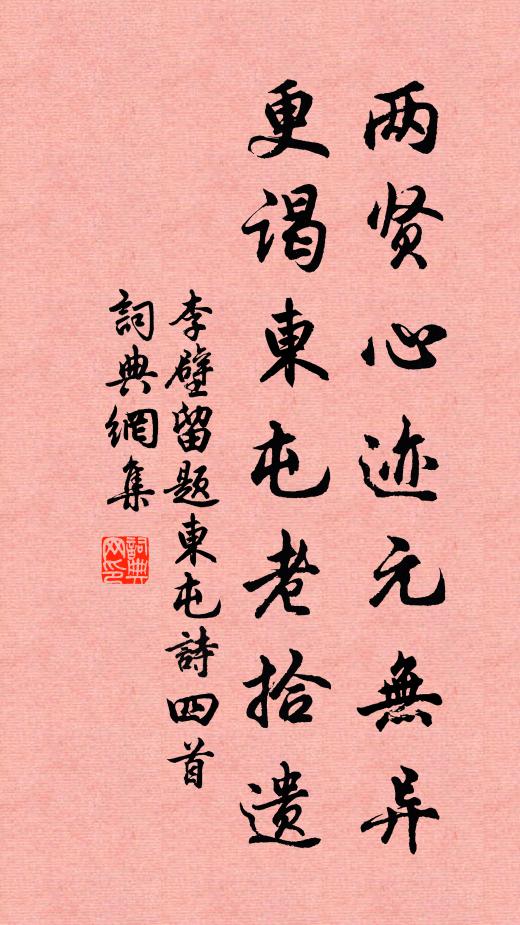 两贤心迹元無异
更谒東屯老拾遗
李壁留题東屯詩四首
詞典網集
詞典网印